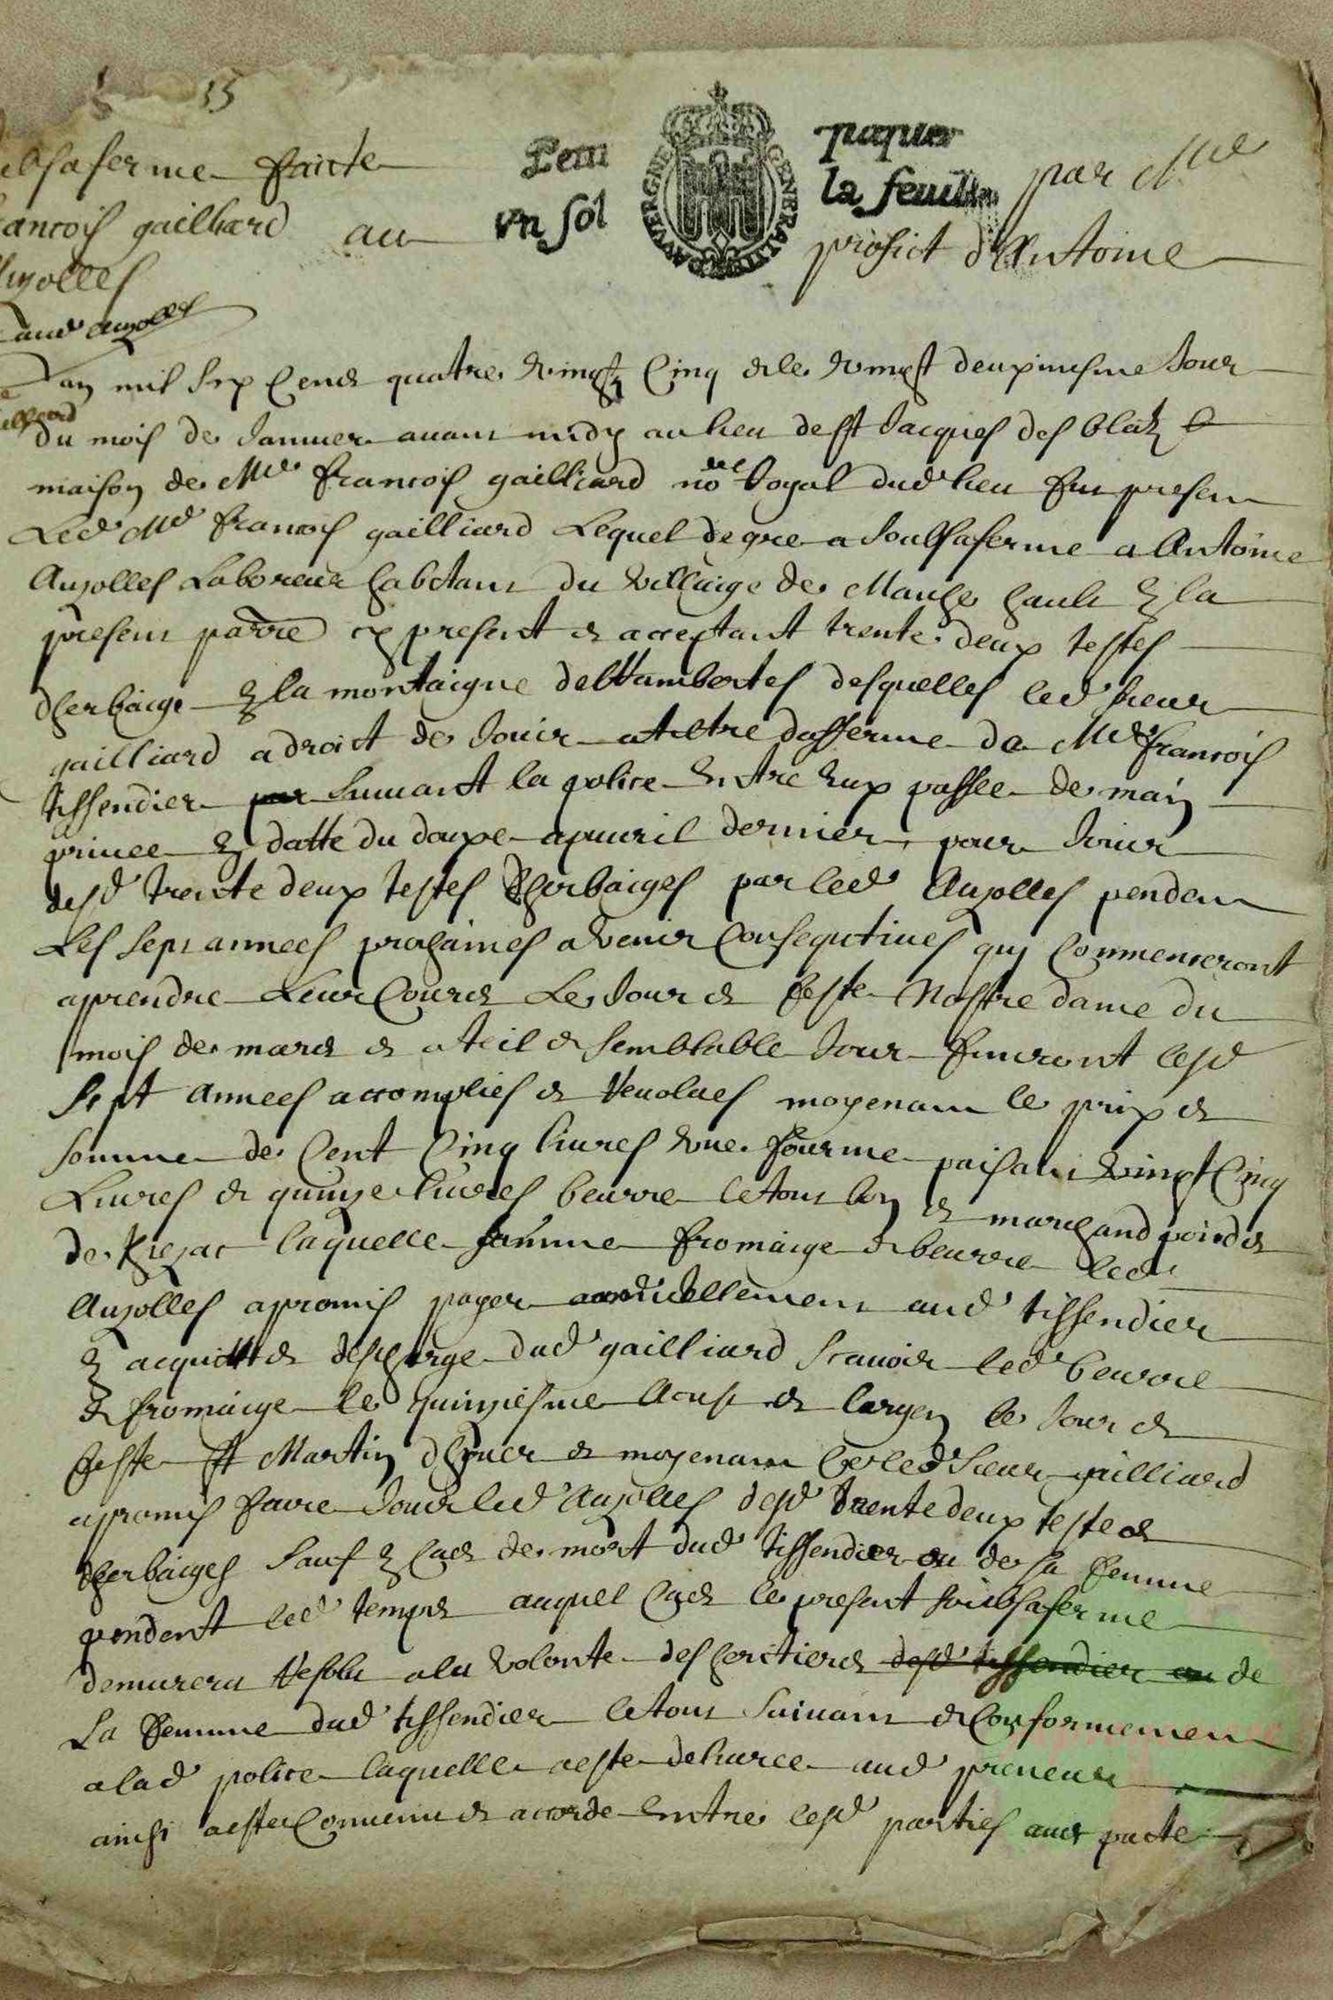 35
Pem papier
vn sol la feuille
AUVERGNE GENERALITE
soubsaferme faicte par Me
francois gailhard au profict d'Antoine
Auzolles
aud auzolles
an mil six cens quatre vingtz cinq et le vingt deuxiesme Jour
du mois de Januier auant midy au lieu de st Jacques des blatz &
maison de Me francois gailliard nore Royal dud lieu fut present
Led Me francois gailliard Lequel de gre a soubsaferme a Antoine
Auzolles Laboreur habitant du villaige de Mauhe hault en la
present parre cy present et acceptant trente deux testes
dherbaige en la montaigne de desquelles led sieur
gailliard a droict de Jouir a tiltre dafferme de Me francois
tissendier suiuant la police entre eux passee de main
priuee en datte du douxe apuuril dernier pour Jouir
desd trente deux testes dherbaiges par led Auzolles pendent
Les sept annees prochaines avenir Consequtiues quy Commenceront
a prendre Leur Cours Le Jour et feste Nostre dame du
mois de mars et a teil et semblable Jour finiront lesd
sept annees accomplies et revolues moyenant le prix et
somme de Cent Cinq liures vne fourme paisant vingt Cinq
Liures et quinze liures beurre le tout bon et marchand poids
de laquelle somme fromaige et beurre led
Auzolles a promis payer annuellement aud tissendier
en acquit et descharge dud gailliard scauoir led beurre
& fromaige le quinziesme Aoust et largen le Jour et
feste st Martin dhiuer et moyenant ce led sieur gailliard
a promis faire Jouir led Auzolles desd trente deux testes
dherbaiges sauf en cas de mort dud tissendier ou de sa femme
pendent led temps auquel cas le present soubsaferme
demurera resolu a la volonte des heritiers desd tissendier ou de
La femme dud tissendier le tout suiuant et Conformement
a lad police laquelle a este deliuree aud preneur
ainsi a este Conuenu et accorde entre lesd parties auec pacte